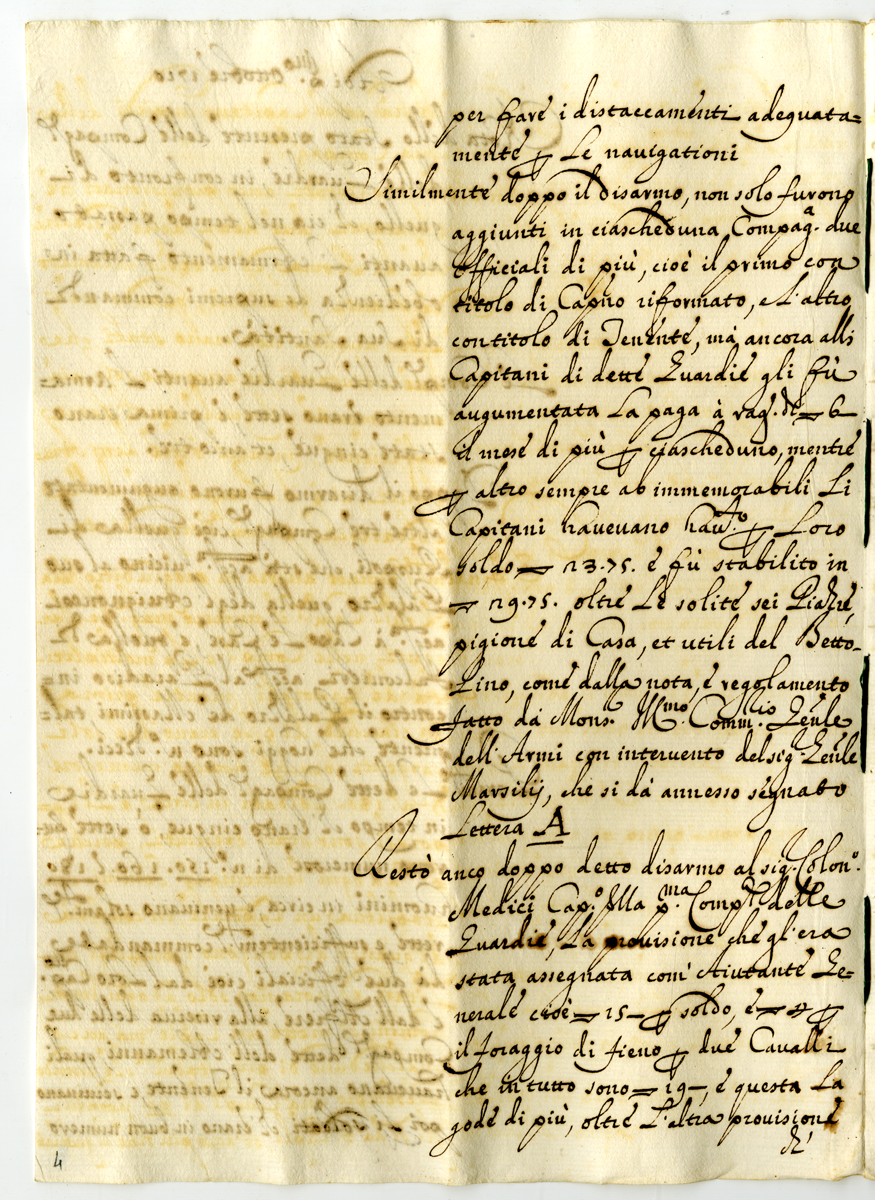 per fare i distaccamenti adeguata=
mente p Le navigationi
Similmente doppo il disarmo, non solo furono
aggiunti in ciascheduna Compag.ª due
officiali di più, cioè il primo con
titolo di Cap̃no riformato, e L'altro
con titolo di Tenente, má ancora alli
Capitani di dette Guardie gli fù
augumentata La paga à rag.ᵉ di = 6 —
il mese di più p ciascheduno, mentre
p altro sempre ab immemorabili Li
Capitani havevano hau.ᵗᵒ p Loro
soldo = 23.75. e fù stabilito in
= 29.75. oltre Le solite sei Piazze,
pigione di Casa, et utili del Betto-
Lino, come dalla nota, e regolamento
fatto dá Mons.ʳ Ill.ᵐᵒ Comm.ʳⁱᵒ Gen̄le
dell'Armi con intervento del sig.ʳ Gen̄le
Marsilij, che si dá annesso segnato
Lettera A
Restò anco doppo detto disarmo al sig.ʳ Colon.º
Medici Cap.º della p.ᵐᵃ Comp.ª delle
Guardie, La provisione che gl'era
stata assegnata com'Aiutante Ge=
nerale cioè = 15 — p soldo, e = 4 p
il foraggio di fieno p due Cavalli
che in tutto sono = 19 —, e questa La
gode di più, oltre L'altra provisione
di
4